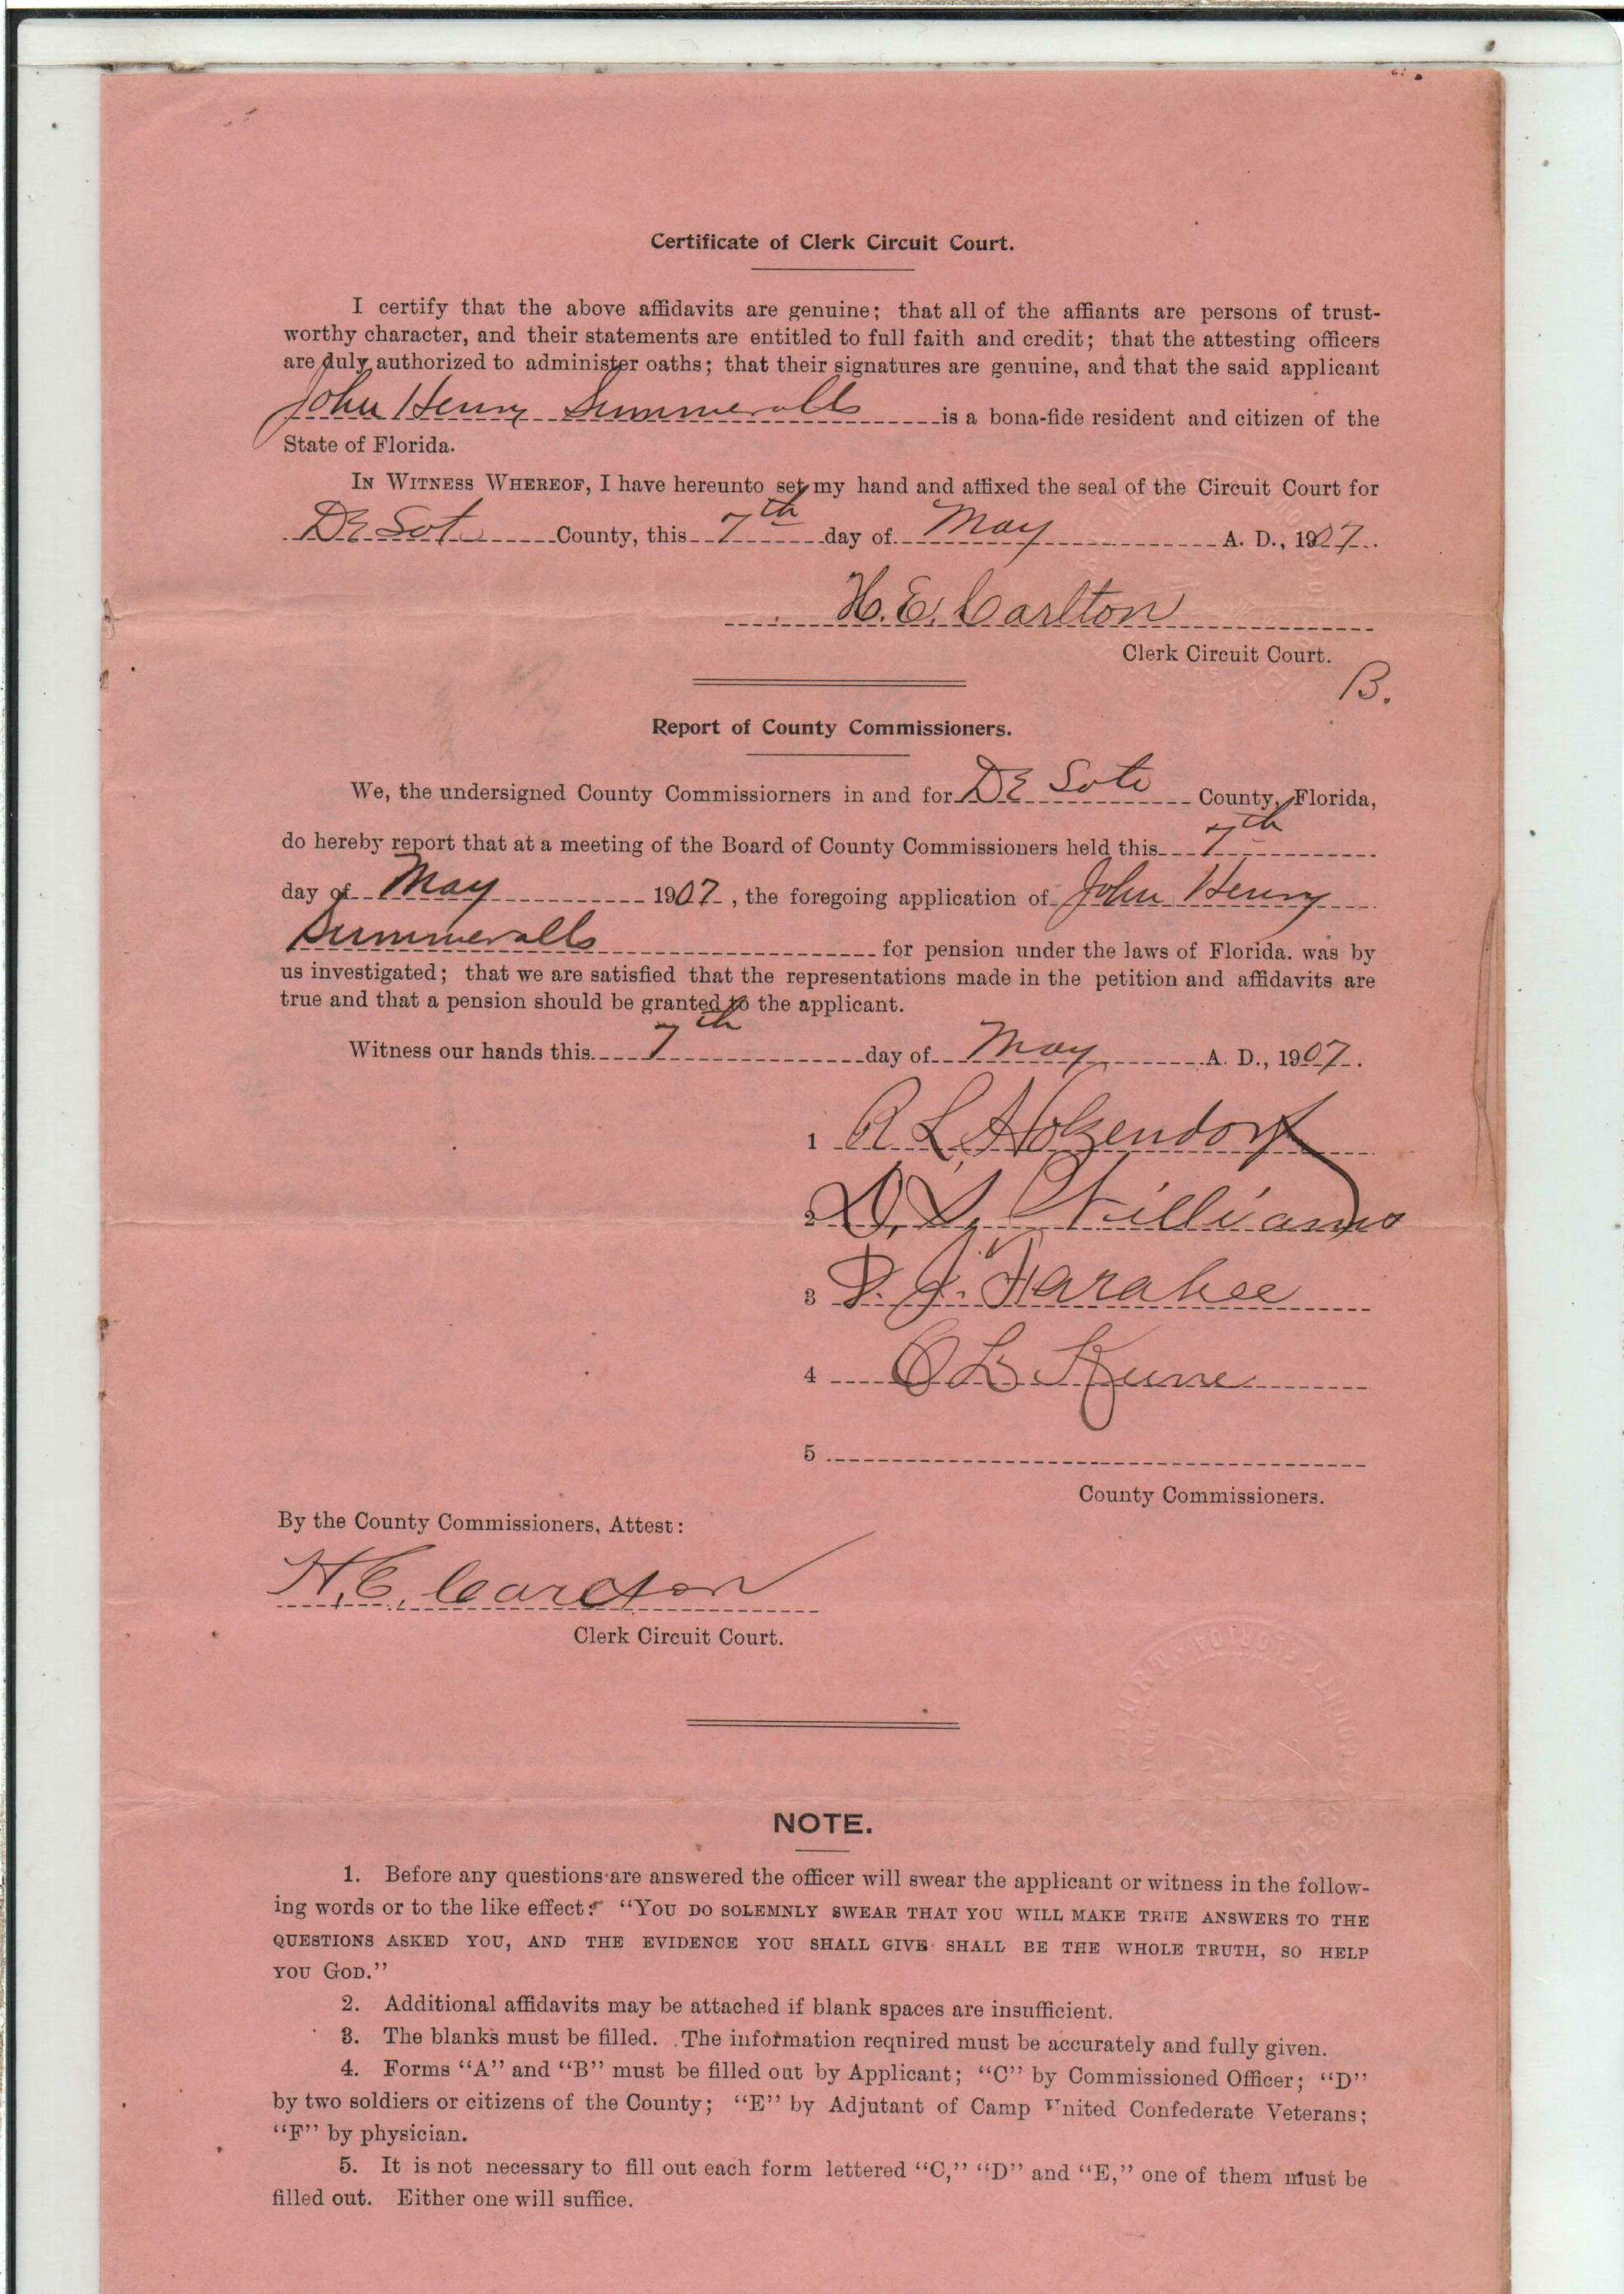 Certificate of Clerk Circuit Court.
I certify that the above affidavits are genuine; that all of the affiants are persons of trust-
worthy character, and their statements are entitled to full faith and credit; that the attesting officers
are duly authorized to administer oaths; that their signatures are genuine, and that the said applicant
John Henry Summeralls is a bona-fide resident and citizen of the
State of Florida.
IN WITNESS WHEREOF, I have hereunto set my hand and affixed the seal of the Circuit Court for
De Soto County, this 7th day of May A. D., 1907.
H. E. Carlton
Clerk Circuit Court.
B.
Report of County Commissioners.
We, the undersigned County Commissiorners in and for De Soto County, Florida,
do hereby report that at a meeting of the Board of County Commissioners held this 7th
day of May 1907, the foregoing application of John Henry
Summeralls for pension under the laws of Florida. was by
us investigated; that we are satisfied that the representations made in the petition and affidavits are
true and that a pension should be granted to the applicant.
Witness our hands this 7th day of May A. D., 1907.
1 R L Holzendorf
2 Williams
3
4
5
County Commissioners.
By the County Commissioners, Attest:
H. E. Carlton
Clerk Circuit Court.
NOTE.
1. Before any questions are answered the officer will swear the applicant or witness in the follow-
ing words or to the like effect: “YOU DO SOLEMNLY SWEAR THAT YOU WILL MAKE TRUE ANSWERS TO THE
QUESTIONS ASKED YOU, AND THE EVIDENCE YOU SHALL GIVE SHALL BE THE WHOLE TRUTH, SO HELP
YOU GOD.”
2. Additional affidavits may be attached if blank spaces are insufficient.
3. The blanks must be filled. The information reqnired must be accurately and fully given.
4. Forms “A” and “B” must be filled out by Applicant; “C” by Commissioned Officer; “D”
by two soldiers or citizens of the County; “E” by Adjutant of Camp United Confederate Veterans;
“F” by physician.
5. It is not necessary to fill out each form lettered “C,” “D” and “E,” one of them must be
filled out. Either one will suffice.